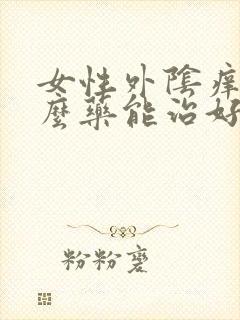 女性外陰癢
麼藥能治好
粉粉蹇